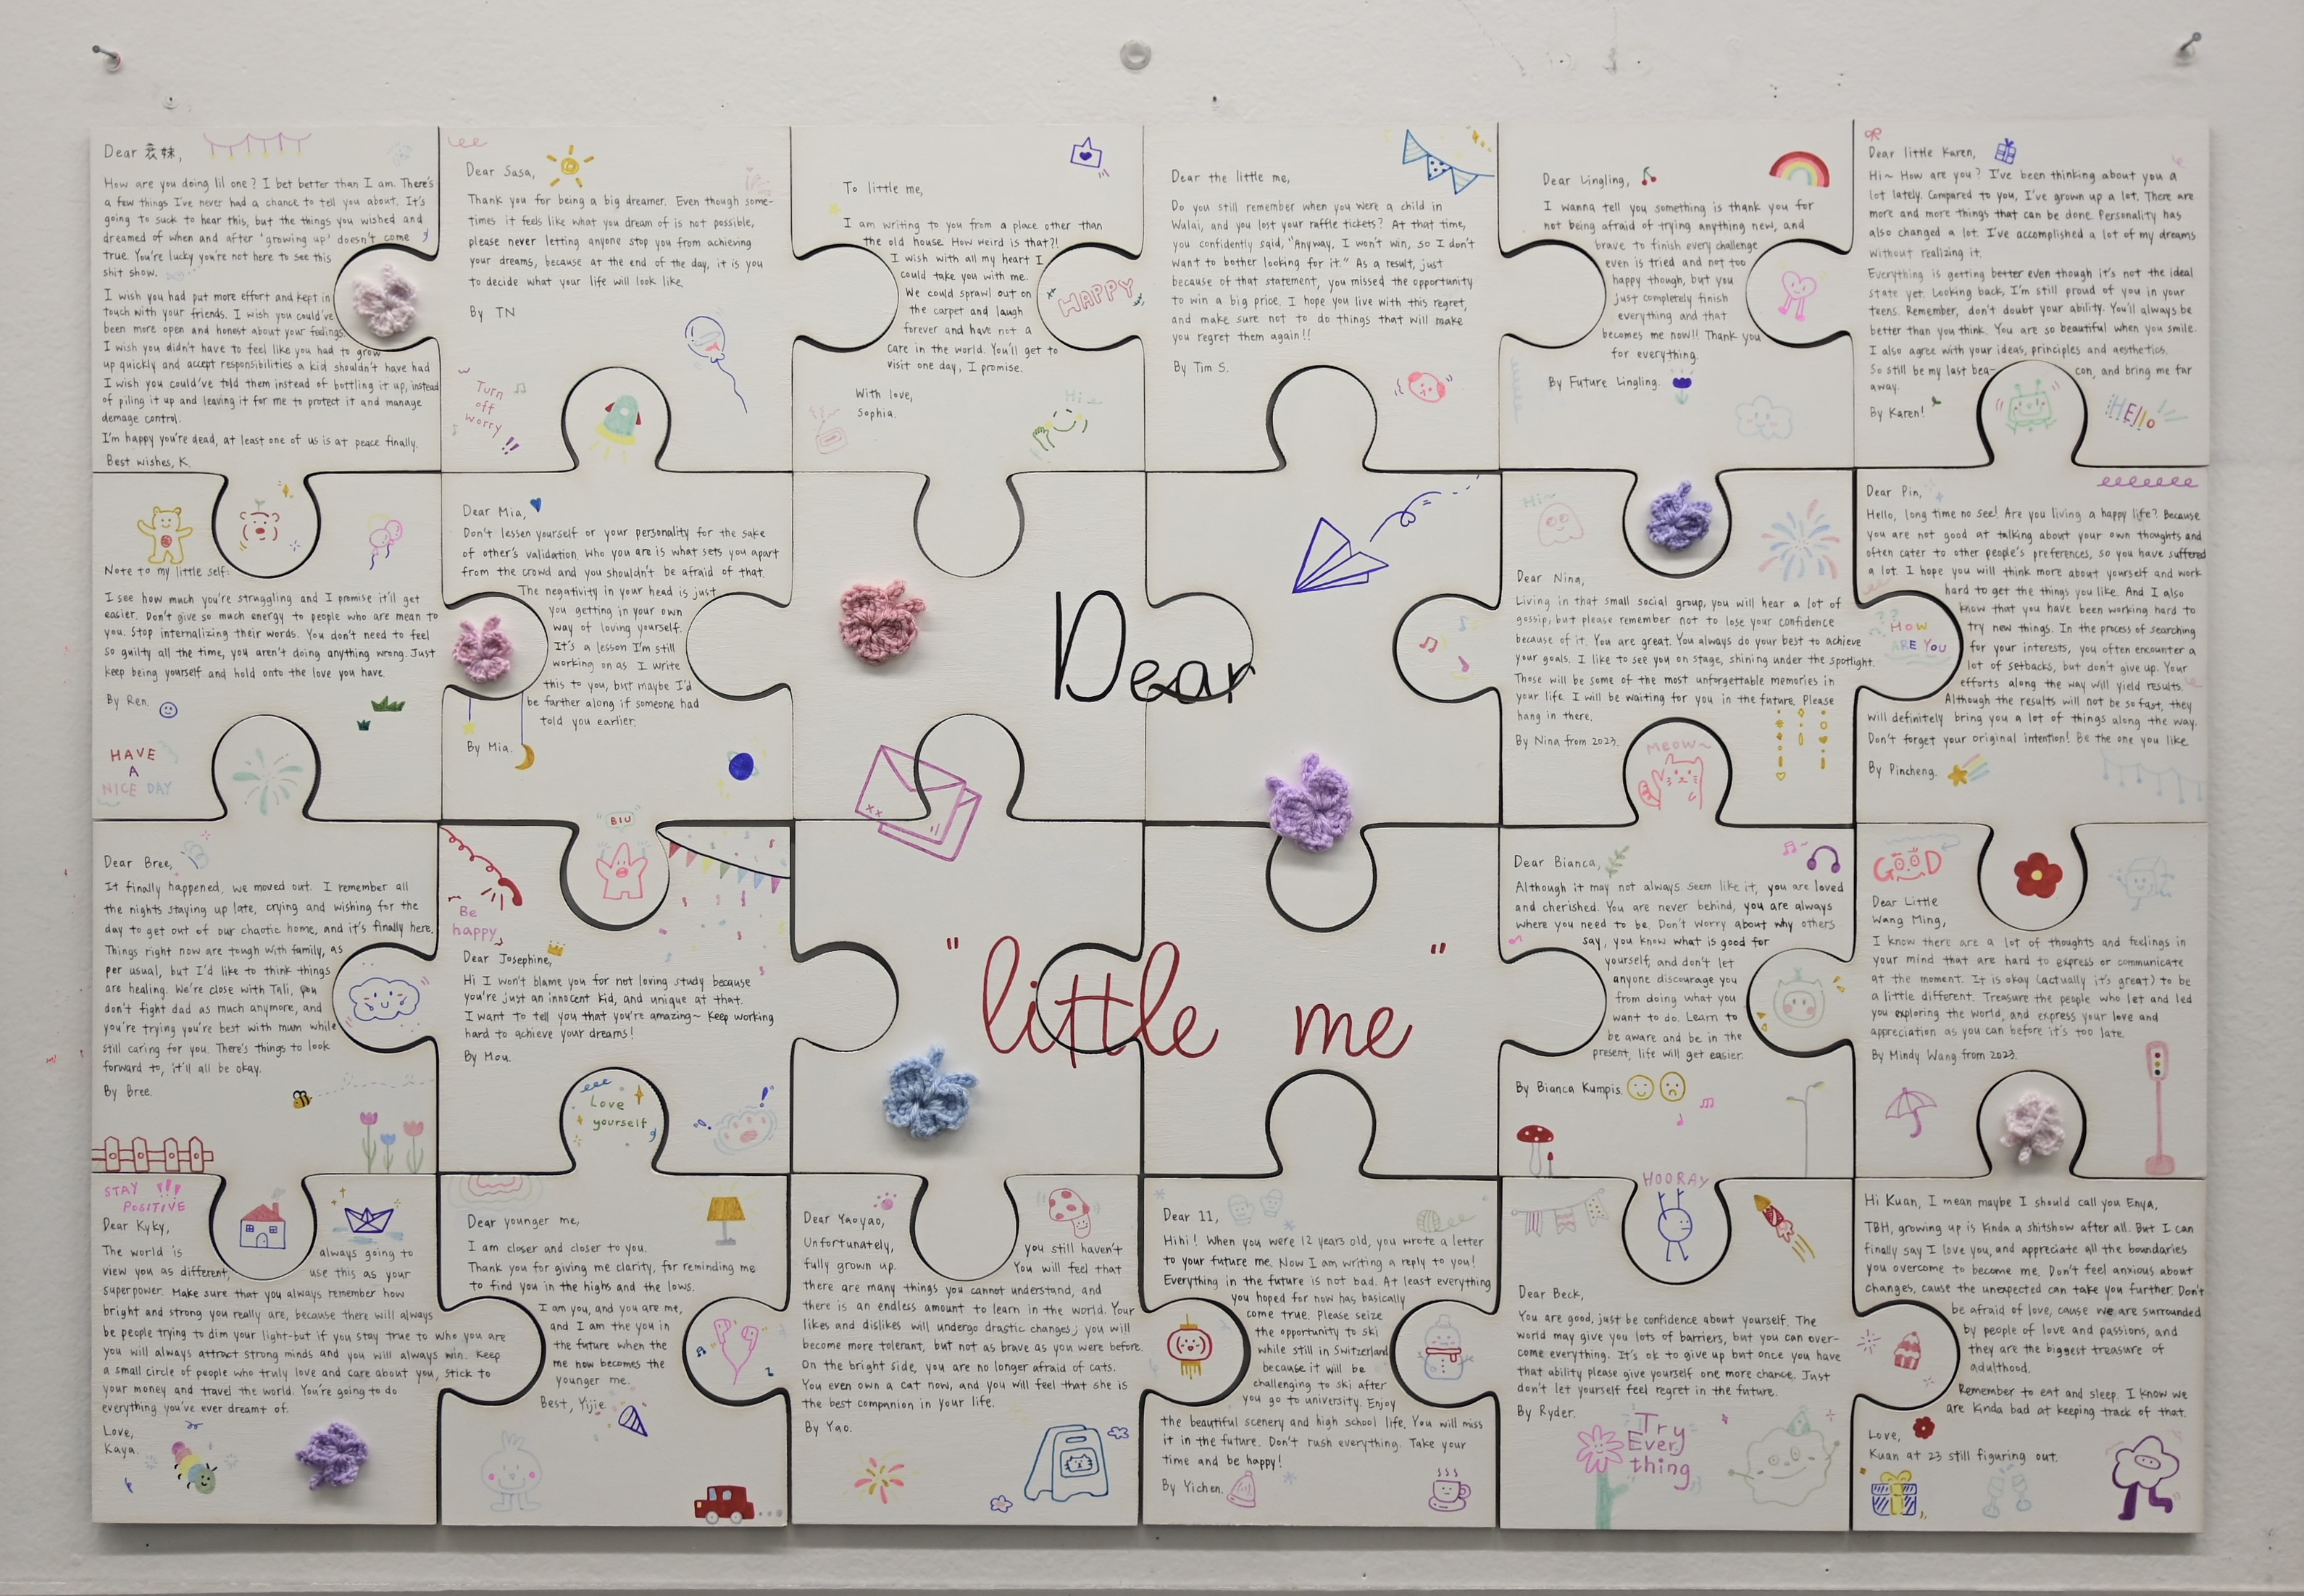 Dear 衰妹,
How are you doing lil one? I bet better than I am. There's
a few things I've never had a chance to tell you about. It's
going to suck to hear this, but the things you wished and
dreamed of when and after 'growing up' doesn't come
true. You're lucky you're not here to see this
shit show.
I wish you had put more effort and kept in
touch with your friends. I wish you could've
been more open and honest about your feelings.
I wish you didn't have to feel like you had to grow
up quickly and accept responsibilities a kid shouldn't have had
I wish you could've told them instead of bottling it up, instead
of piling it up and leaving it for me to protect it and manage
demage control.
I'm happy you're dead, at least one of us is at peace finally.
Best wishes, K.
Dear Sasa,
Thank you for being a big dreamer. Even though some-
times it feels like what you dream of is not possible,
please never letting anyone stop you from achieving
your dreams, because at the end of the day, it is you
to decide what your life will look like.
By TN
Turn
off
worry !!
To little me,
I am writing to you from a place other than
the old house. How weird is that?!
I wish with all my heart I
could take you with me.
We could sprawl out on
the carpet and laugh
forever and have not a
care in the world. You'll get to
visit one day, I promise.
With love,
Sophia.
HAPPY
Hi
Dear the little me,
Do you still remember when you were a child in
Wulai, and you lost your raffle tickets? At that time,
you confidently said, "Anyway, I won't win, so I don't
want to bother looking for it." As a result, just
because of that statement, you missed the opportunity
to win a big price. I hope you live with this regret,
and make sure not to do things that will make
you regret them again!!
By Tim S.
Dear Lingling,
I wanna tell you something is thank you for
not being afraid of trying anything new, and
brave to finish every challenge
even is tried and not too
happy though, but you
just completely finish
everything and that
becomes me now!! Thank you
for everything.
By Future Lingling.
Dear little Karen,
Hi~ How are you? I've been thinking about you a
lot lately. Compared to you, I've grown up a lot. There are
more and more things that can be done. Personality has
also changed a lot. I've accomplished a lot of my dreams
without realizing it.
Everything is getting better even though it's not the ideal
state yet. Looking back, I'm still proud of you in your
teens. Remember, don't doubt your ability. You'll always be
better than you think. You are so beautiful when you smile.
I also agree with your ideas, principles and aesthetics.
So still be my last bea- con, and bring me far
away.
By Karen!
HEllo
Note to my little self:
I see how much you're struggling and I promise it'll get
easier. Don't give so much energy to people who are mean to
you. Stop internalizing their words. You don't need to feel
so guilty all the time, you aren't doing anything wrong. Just
keep being yourself and hold onto the love you have.
By Ren.
HAVE
A
NICE DAY
Dear Mia,
Don't lessen yourself or your personality for the sake
of other's validation. Who you are is what sets you apart
from the crowd and you shouldn't be afraid of that.
The negativity in your head is just
you getting in your own
way of loving yourself.
It's a lesson I'm still
working on as I write
this to you, but maybe I'd
be farther along if someone had
told you earlier.
By Mia.
Dear
Hi~
Dear Nina,
Living in that small social group, you will hear a lot of
gossip, but please remember not to lose your confidence
because of it. You are great. You always do your best to achieve
your goals. I like to see you on stage, shining under the spotlight.
Those will be some of the most unforgettable memories in
your life. I will be waiting for you in the future. Please
hang in there.
By Nina from 2023.
MEOW~
Dear Pin,
Hello, long time no see! Are you living a happy life? Because
you are not good at talking about your own thoughts and
often cater to other people's preferences, so you have suffered
a lot. I hope you will think more about yourself and work
hard to get the things you like. And I also
know that you have been working hard to
try new things. In the process of searching
for your interests, you often encounter a
lot of setbacks, but don't give up. Your
efforts along the way will yield results.
Although the results will not be so fast, they
will definitely bring you a lot of things along the way.
Don't forget your original intention! Be the one you like
By Pincheng.
??
HOW
ARE YOU
Dear Bree,
It finally happened, we moved out. I remember all
the nights staying up late, crying and wishing for the
day to get out of our chaotic home, and it's finally here.
Things right now are tough with family, as
per usual, but I'd like to think things
are healing. We're close with Tali, you
don't fight dad as much anymore, and
you're trying you're best with mum while
still caring for you. There's things to look
forward to, it'll all be okay.
By Bree.
BIU
Be
happy
Dear Josephine,
Hi I won't blame you for not loving study because
you're just an innocent kid, and unique at that.
I want to tell you that you're amazing~ Keep working
hard to achieve your dreams!
By Mou.
Love
yourself
"little me"
Dear Bianca,
Although it may not always seem like it, you are loved
and cherished. You are never behind, you are always
where you need to be. Don't worry about why others
say, you know what is good for
yourself, and don't let
anyone discourage you
from doing what you
want to do. Learn to
be aware and be in the
present, life will get easier.
By Bianca Kumpis.
GOOD
Dear Little
Wang Ming,
I know there are a lot of thoughts and feelings in
your mind that are hard to express or communicate
at the moment. It is okay (actually it's great) to be
a little different. Treasure the people who let and led
you exploring the world, and express your love and
appreciation as you can before it's too late.
By Mindy Wang from 2023.
STAY !!!
POSITIVE
Dear Kyky,
The world is always going to
view you as different, use this as your
superpower. Make sure that you always remember how
bright and strong you really are, because there will always
be people trying to dim your light-but if you stay true to who you are
you will always attract strong minds and you will always win. Keep
a small circle of people who truly love and care about you, stick to
your money and travel the world. You're going to do
everything you've ever dreamt of.
Love,
Kaya.
Dear younger me,
I am closer and closer to you.
Thank you for giving me clarity, for reminding me
to find you in the highs and the lows.
I am you, and you are me,
and I am the you in
the future when the
me now becomes the
younger me.
Best, Yijie
Dear Yaoyao,
Unfortunately, you still haven't
fully grown up. You will feel that
there are many things you cannot understand, and
there is an endless amount to learn in the world. Your
likes and dislikes will undergo drastic changes; you will
become more tolerant, but not as brave as you were before.
On the bright side, you are no longer afraid of cats.
You even own a cat now, and you will feel that she is
the best companion in your life.
By Yao.
Dear 11,
Hihi! When you were 12 years old, you wrote a letter
to your future me. Now I am writing a reply to you!
Everything in the future is not bad. At least everything
you hoped for now has basically
come true. Please seize
the opportunity to ski
while still in Switzerland
because it will be
challenging to ski after
you go to university. Enjoy
the beautiful scenery and high school life. You will miss
it in the future. Don't rush everything. Take your
time and be happy!
By Yichen.
HOORAY
Dear Beck,
You are good, just be confidence about yourself. The
world may give you lots of barriers, but you can over-
come everything. It's ok to give up but once you have
that ability please give yourself one more chance. Just
don't let yourself feel regret in the future.
By Ryder.
Try
Every
thing
Hi Kuan, I mean maybe I should call you Enya,
TBH, growing up is kinda a shitshow after all. But I can
finally say I love you, and appreciate all the boundaries
you overcome to become me. Don't feel anxious about
changes, cause the unexpected can take you further. Don't
be afraid of love, cause we are surrounded
by people of love and passions, and
they are the biggest treasure of
adulthood.
Remember to eat and sleep. I know we
are kinda bad at keeping track of that.
Love,
Kuan at 23 still figuring out.